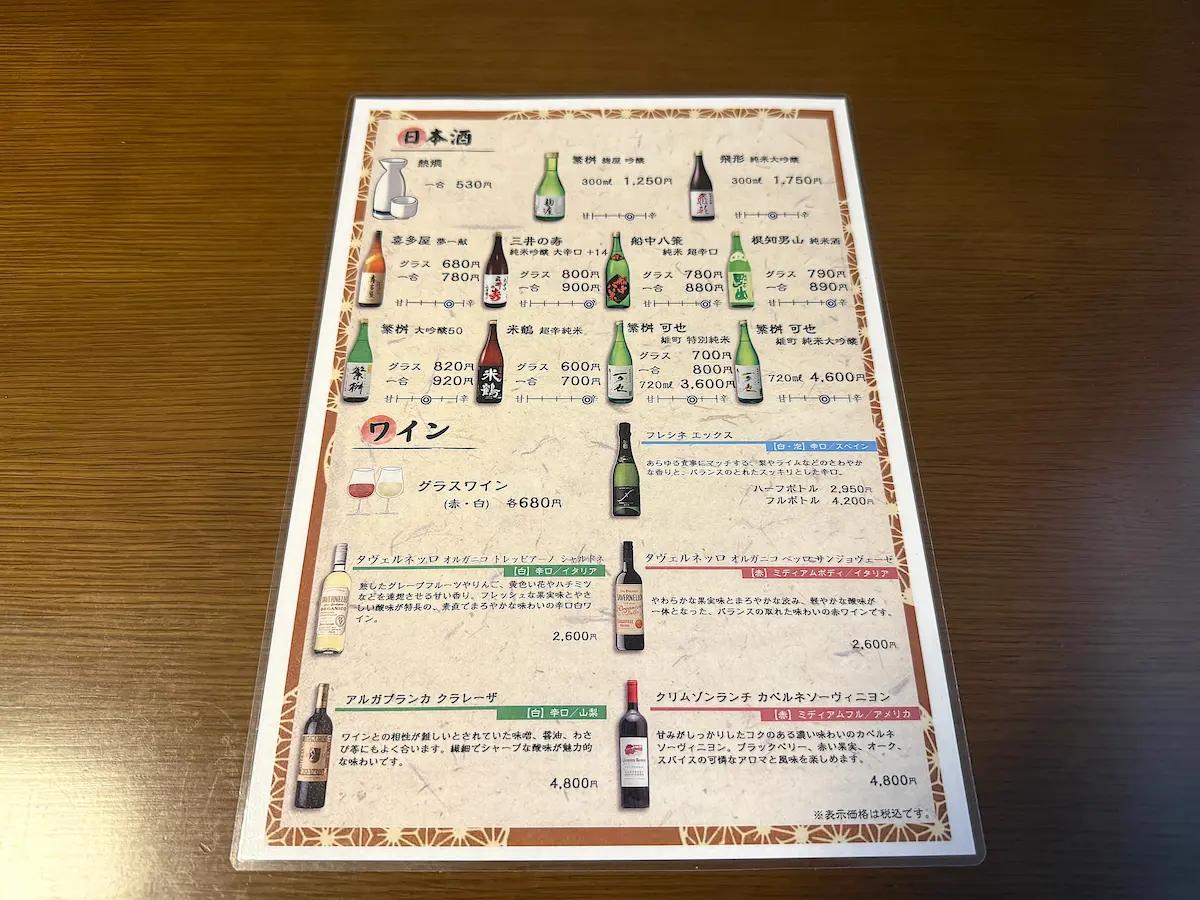 日本酒
熱燗
一合 530円
繁桝 麹屋 吟醸
300㎖ 1,250円
甘 辛
飛形 純米大吟醸
300㎖ 1,750円
甘 辛
喜多屋 夢一献
グラス 680円
一合 780円
甘 辛
三井の寿
純米吟醸 大辛口 +14
グラス 800円
一合 900円
甘 辛
船中八策
純米 超辛口
グラス 780円
一合 880円
甘 辛
根知男山 純米酒
グラス 790円
一合 890円
甘 辛
繁桝 大吟醸50
グラス 820円
一合 920円
甘 辛
米鶴 超辛純米
グラス 600円
一合 700円
甘 辛
繁桝 可也
雄町 特別純米
グラス 700円
一合 800円
720㎖ 3,600円
甘 辛
繁桝 可也
雄町 純米大吟醸
720㎖ 4,600円
甘 辛
ワイン
グラスワイン
(赤・白) 各680円
フレシネ エックス
【白・泡】辛口/スペイン
あらゆる食事にマッチする、梨やライムなどのさわやか
な香りと、バランスのとれたスッキリとした辛口。
ハーフボトル 2,950円
フルボトル 4,200円
タヴェルネッロ オルガニコ トレッビアーノ シャルドネ
【白】辛口/イタリア
熟したグレープフルーツやりんご、黄色い花やハチミツ
などを連想させる甘い香り。フレッシュな果実味とやさ
しい酸味が特長の、素直でまろやかな味わいの辛口白ワ
イン。
2,600円
タヴェルネッロ オルガニコ ベッロ サンジョヴェーゼ
【赤】ミディアムボディ/イタリア
やわらかな果実味とまろやかな渋み、軽やかな酸味が
一体となった、バランスの取れた味わいの赤ワインです。
2,600円
アルガブランカ クラレーザ
【白】辛口/山梨
ワインとの相性が難しいとされていた味噌、醤油、わさ
び等にもよく合います。繊細でシャープな酸味が魅力的
な味わいです。
4,800円
クリムゾンランチ カベルネソーヴィニヨン
【赤】ミディアムフル/アメリカ
甘みがしっかりしたコクのある濃い味わいのカベルネ
ソーヴィニヨン。ブラックベリー、赤い果実、オーク、
スパイスの可憐なアロマと風味を楽しめます。
4,800円
※表示価格は税込です。